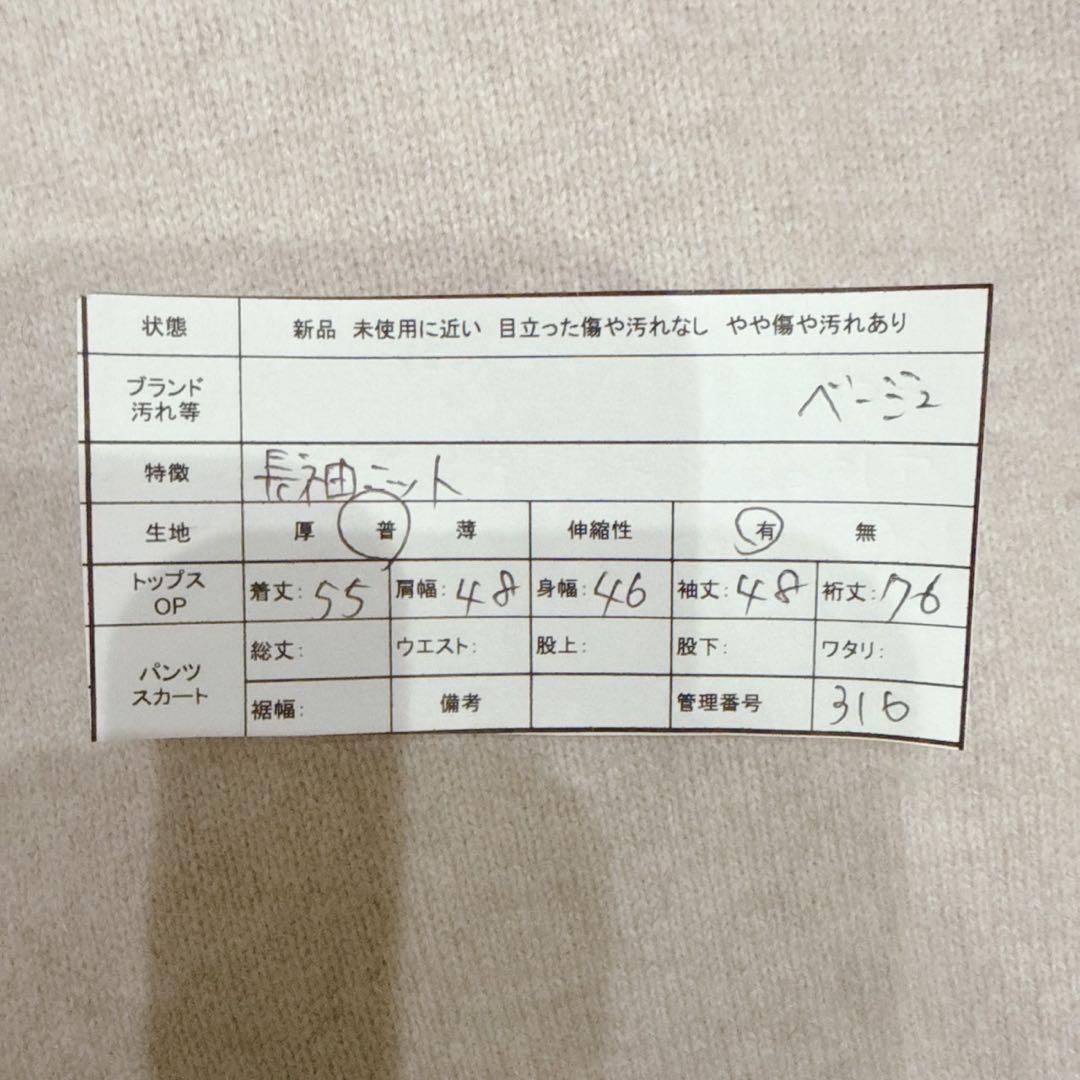 状態 新品 未使用に近い 目立った傷や汚れなし やや傷や汚れあり
ブランド
汚れ等 ベージュ
特徴 長袖ニット
生地 厚 普 薄 伸縮性 有 無
トップス
OP 着丈:55 肩幅:48 身幅:46 袖丈:48 裄丈:76
パンツ
スカート 総丈: ウエスト: 股上: 股下: ワタリ:
裾幅: 備考 管理番号 316